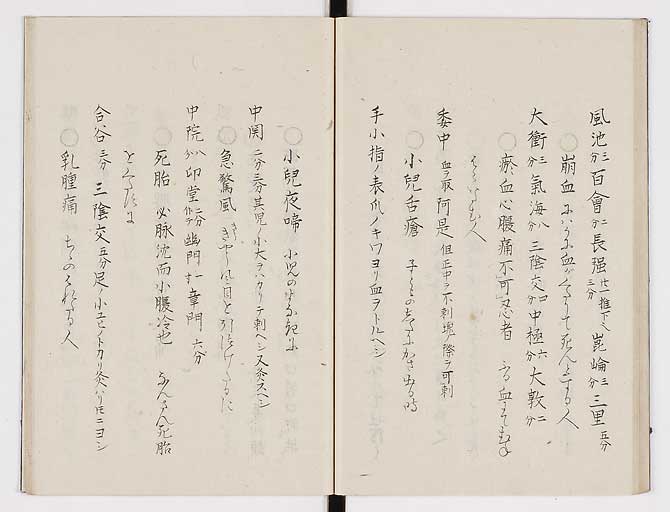 風池三分 百會二分 長强廿一椎下ヘ三分 崑崘三分 三里五分
○崩血 にハかに血がくだりて死んとする人
大衝三分 氣海八分 三陰交四分 中極六分 大敦二分
○瘀血心腹痛不可忍者 ふる血
人
委中血ヲ取 阿是但正中ヲ不刺塊ノ際ヲ可刺
○小兒舌瘡 子どもの したにかさ出る時
手小指ノ表爪ノキワヨリ血ヲトルヘシ
○小兒夜啼 小児のよなきに
中関二分三分其児ノ小大ヲハカリテ刺ヘシ又灸スヘシ
○急驚風 目を引つけたるに
中院八分 印堂二分 幽門十一 章門六分
○死胎 必脉沈而小腹冷也 なんさん死胎
をくだすに
合谷三分 三陰交五分足ノ小ユビノトカリ灸 ニヨシ
○乳腫痛 ちちのはれたる人